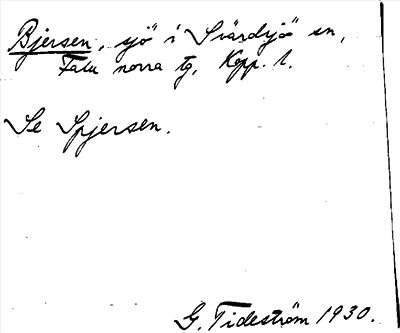 Bjersen, sjö i Svärdsjö sn,
Falu norra tg, Kopp. l.
Se Spjersen.
G. Tideström 1930.